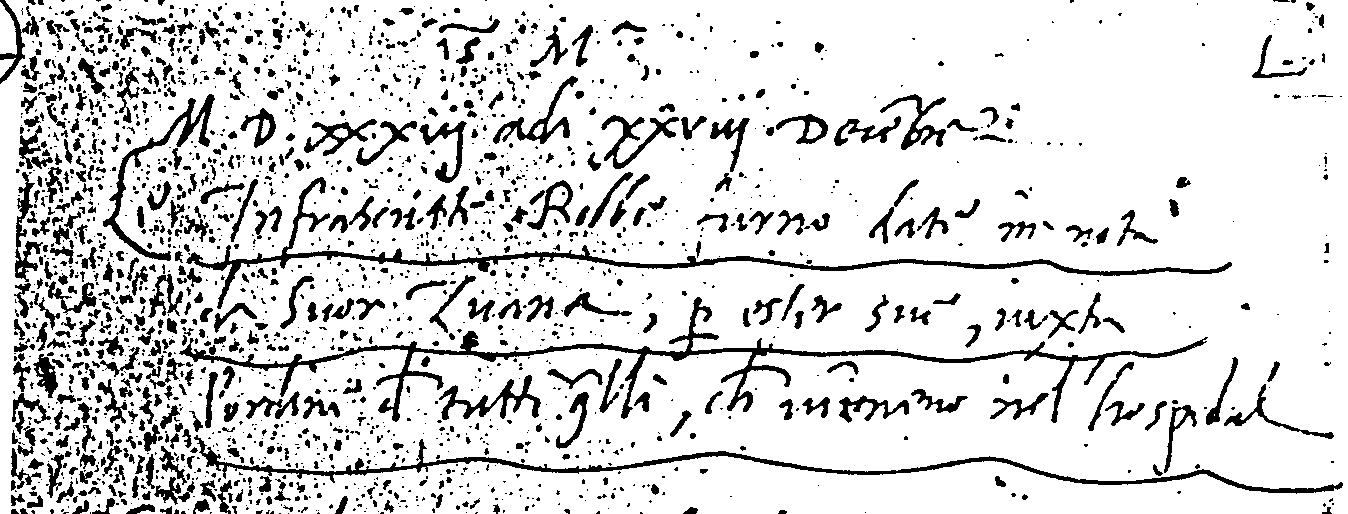 M D xxxiij adi xxviij Decēbre
Infrascritte Robbe furno date in nota
da Suor Zuana, p esser sue, iuxta
l'ordine d tutti q̄lli, ch uieneno nel hospidal